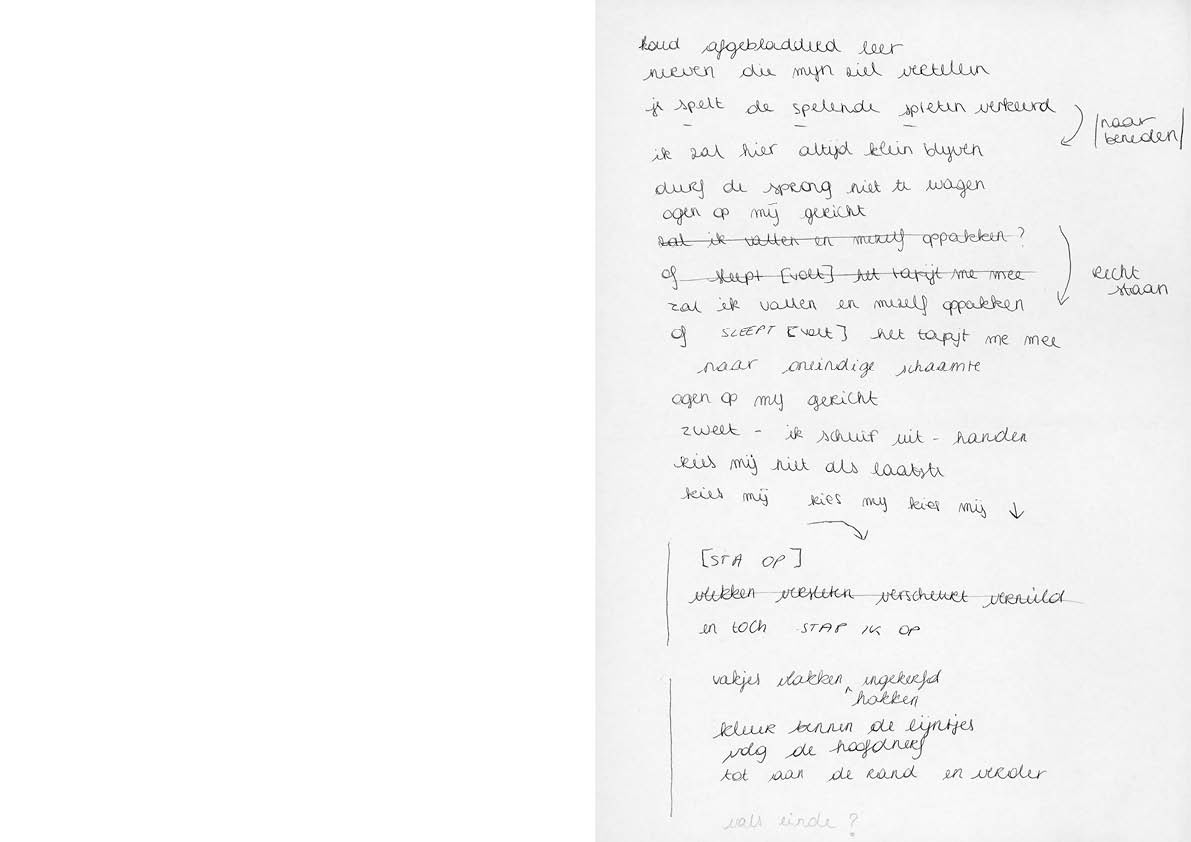 koud afgebladderd leer
nerven die mijn ziel vertellen
je spelt de spelende spieren verkeerd
naar
beneden
ik zal hier altijd klein blijven
durf de sprong niet te wagen
ogen op mij gericht
zal ik vallen en mezelf oppakken ?
of sleept [voelt] het tapijt me mee
recht
staan
zal ik vallen en mezelf oppakken
of SLEEPT [voelt] het tapijt me mee
naar oneindige schaamte
ogen op mij gericht
zweet - ik schuif uit - handen
kies mij niet als laatste
kies mij kies mij kies mij ↓
[STA OP]
vlekken versleten verscheurt vervuild
en toch STAP IK OP
vakjes vlakken ingekerfd
hokken
kleur binnen de lijntjes
volg de hoofdnerf
tot aan de rand en verder
vals einde ?